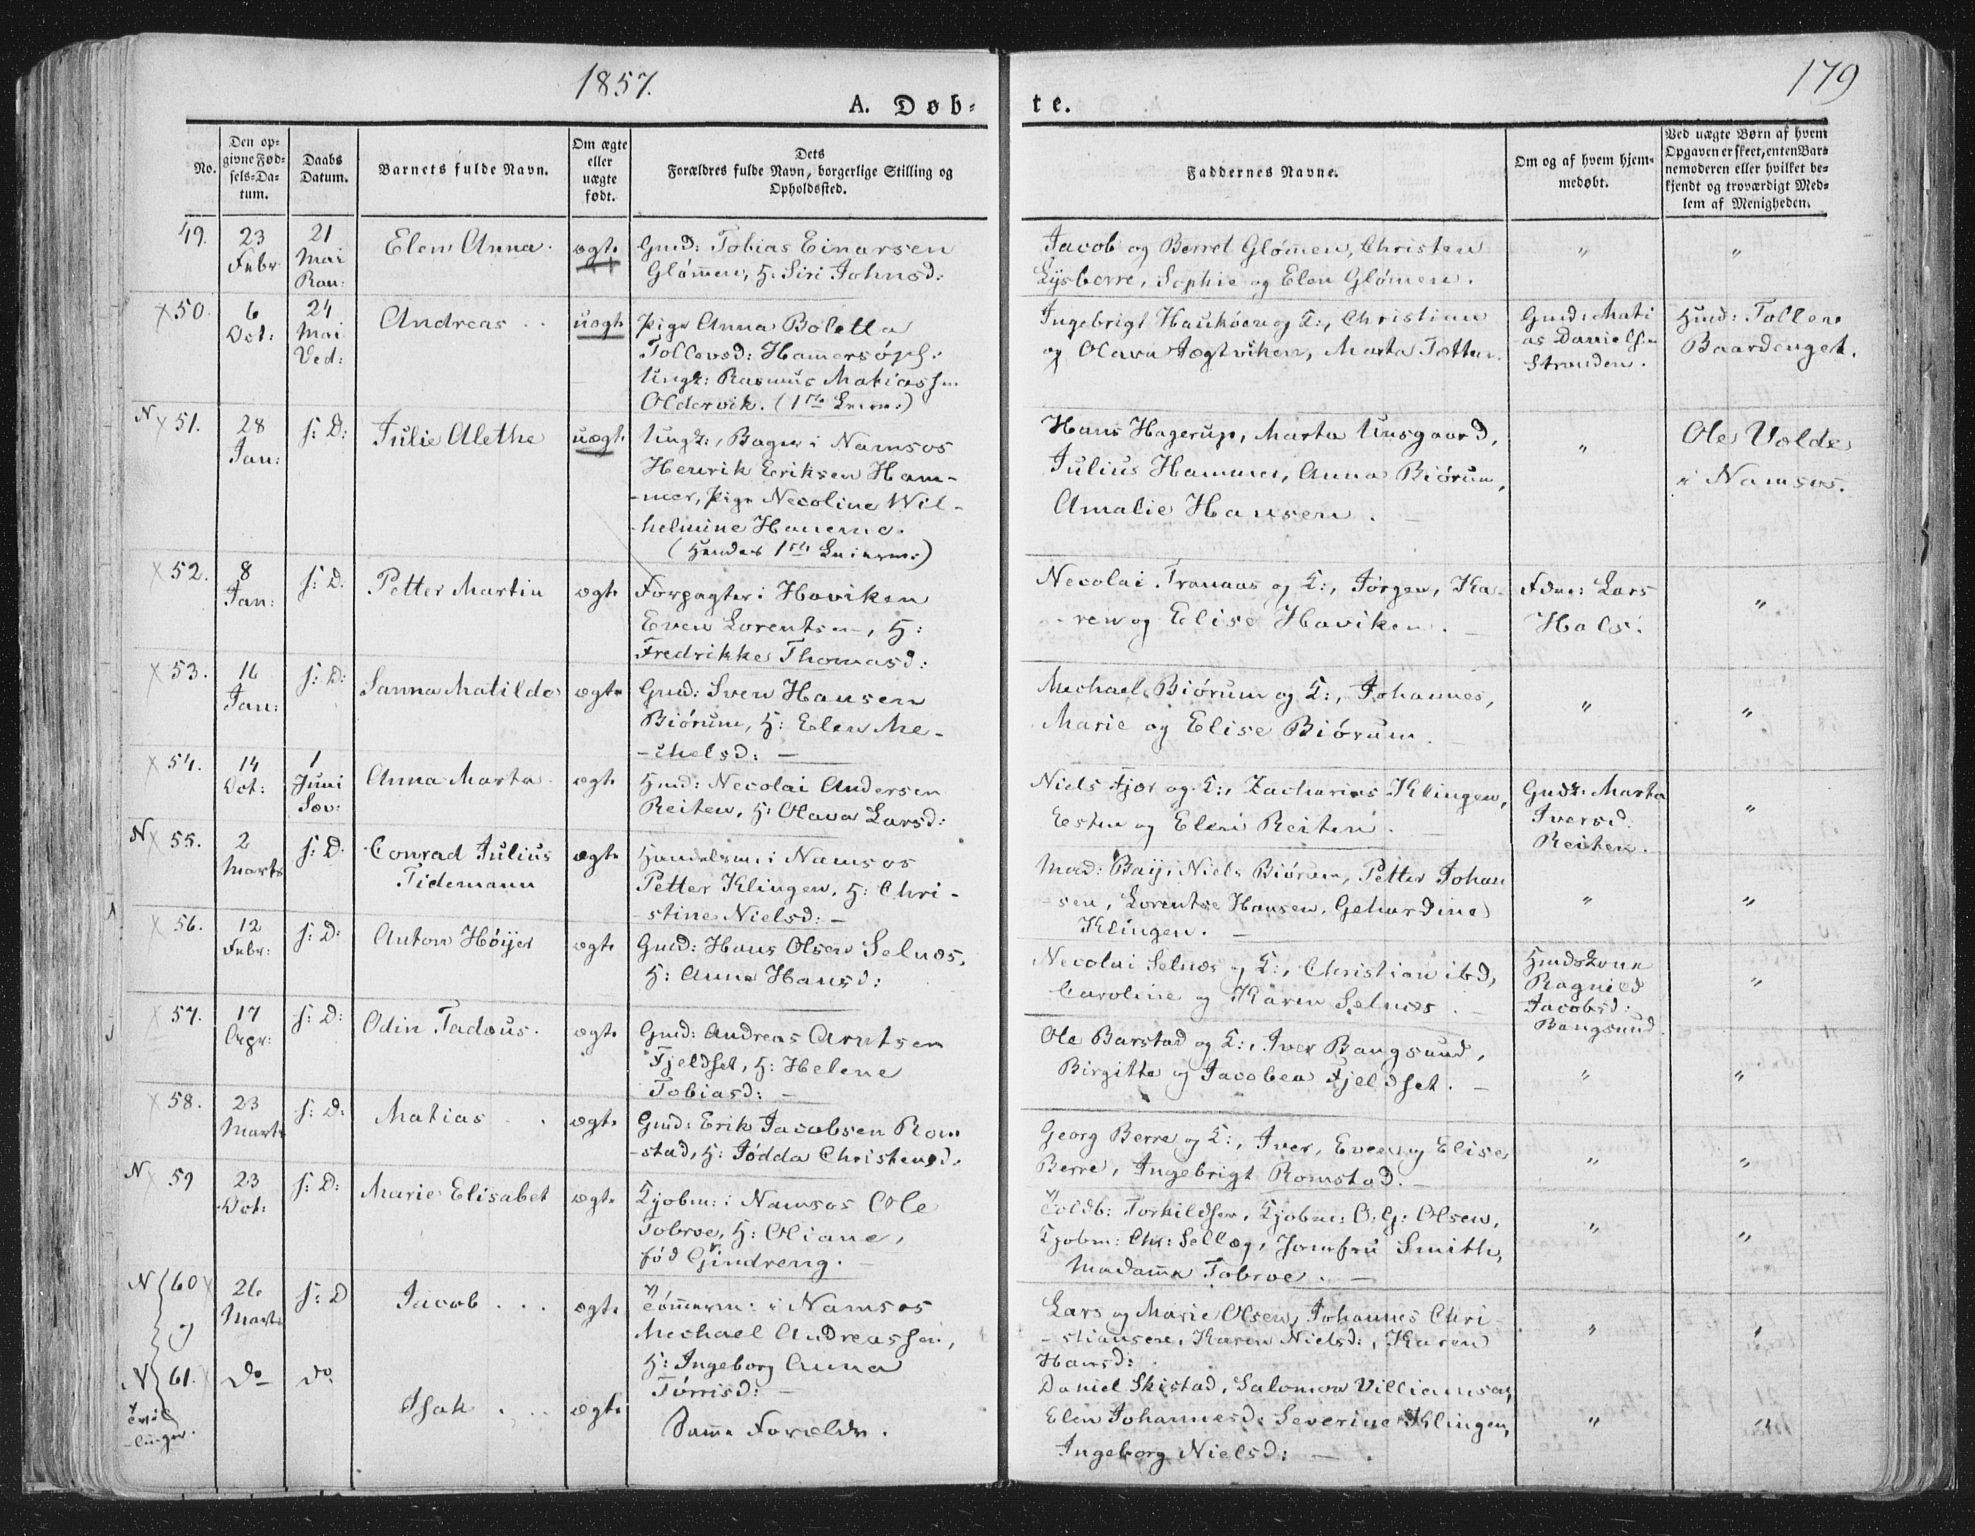 1857.
179
A. Døb-
te.
No.
Den op-
givne Fød-
sels-Da-
tum.
Daabs
Datum.
Barnets fulde Navn.
Om ægte
eller
uægte
født.
Dets
Forældres fulde Navn, borgerlige Stilling og
Opholdssted.
Faddernes Navne.
Om og af hvem hjem-
medøbt.
Ved uægte Børn af hvem
Opgaven er skeet, enten Bar-
nemoderen eller hvilket be-
kjendt og troværdigt Med-
lem af Menigheden.
49.
23
Febr
21
Mai
Ran:
Elen Anna.
ægte
Gmd: Tobias Einarsen
Glømmen, H: Siri Johnsd:
Jacob og Berret Glømmen, Christen
Lysberre, Sophie og Elen Glømen.
"
"
x 50.
6
Oct:
24
Mai
Ved:
Andreas . .
uægt
Pige Anna Boletta
Tollevsd: Hamersøpl:
Ungk: Rasmus Matiass:n
Oldervik. (1ste Leierm:)
Ingebrigt Haukøen og K:, Christian
og Olava Jægtviken, Marta Tætten.
Gmd: Mati
as Daniels:n
Stranden.
Hmd: Tollev
Baardenget.
N x 51.
28
Jan:
s: D:
Julie Alethe
uægt
Ungk:, Bager i Namsos
Henrik Eriksen Ham-
-mer, Pige Necoline Wil-
-helmine
(Hendes 1ste Leierm:)
Hans Hagerup, Marta Unsgaard,
Julius Hammer, Anna Biørum,
Amalie Hansen.
"
Ole Volde
i Namsos.
x 52.
8
Jan:
s: D.
Petter Martin
ægte
Forpagter i Haviken
Even Lorentsen, H:
Fredrikke Thomasd:
Necolai Tranaas og K:, Jørgen, Ka-
-ren og Elise Haviken. -
Fdm: Lars
Hals.
"
x 53.
16
Jan:
s: D:
Sanna Matilde
ægte
Gmd: Sven Hansen
Biørum, H: Elen Me-
-chelsd: -
Mechael Biørum og K:, Johannes,
Marie og Elise Biørum.
"
"
x 54.
14
Oct:
1
Juni
Sæv:
Anna Marta.
ægt
Hmd: Necolai Andersen
Reiten, H: Olava Larsd:
Niels Fjær og K:, Zacharias Klingen,
Esten og Elen Reiten. -
Gmdk: Marta
Iversd.
Reiten.
"
N x 55.
2
Marts
s: D.
Conrad Julius
Tidemann
ægte
Handelsm: i Namsos
Petter Klingen, H: Chri-
-stine Nielsd: -
Mad: Bay, Niels Biørum, Petter Johan
-sen, Lorentse Hansen, Gehardine
Klingen. -
"
"
x 56.
12
Febr:
s: D:
Anton Høyer
ægte
Gmd: Hans Olsen Selnæs,
H: Anna Hansd:
Necolai Selnæs og K:, Christian ibd,
Caroline og Karen Selnæs. -
Hmdskone
Ragnild
Jacobsd:
Bangsund.
"
x 57.
17
Apr:
s: D:
Odin Tadæus.
ægte
Gmd: Andreas Arntsen
Fjeldset, H: Helene
Tobiasd: -
Ole Barstad og K:, Iver Bangsund,
Birgitte og Jacobea Fjeldset. -
"
"
x 58.
23
Marts
s: D:
Matias . .
ægte
Gmd: Erik Jacobsen Rom
-stad, H: Jødda Christensd.
Georg Berre og K:, Iver, Even og Elise
Berre, Ingebrigt Romstad. -
"
"
N x 59
23
Oct:
s: D:
Marie Elisabet
ægte
Kjøbm: i Namsos Ole
Tobroe, H: Oliane,
fød Gjindreng. -
Toldb: Torkildsen, Kjøbm: O. G: Olsen,
Kjøbm: Chr: Sellæg, Jomfru Smith,
Madamme Tobroe. -
"
"
N 60
og
26
Marts
s: D
Jacob . . .
ægte
Tømmerm: i Namsos
Mechael Andreassen,
H: Ingeborg Anna
Tørrisd: -
Lars og Marie Olsen, Johannes Chri-
-stiansen, Karen Nielsd:, Karen
Hansd:
"
"
N 61.
Tvil
-linger.
Do
do
Isak . . .
ægte
Samme Forældre.
Daniel Skistad, Salomon Villiamsen,
Elen Johannesd: Severine Klingen,
Ingeborg Nielsd: -
"
"